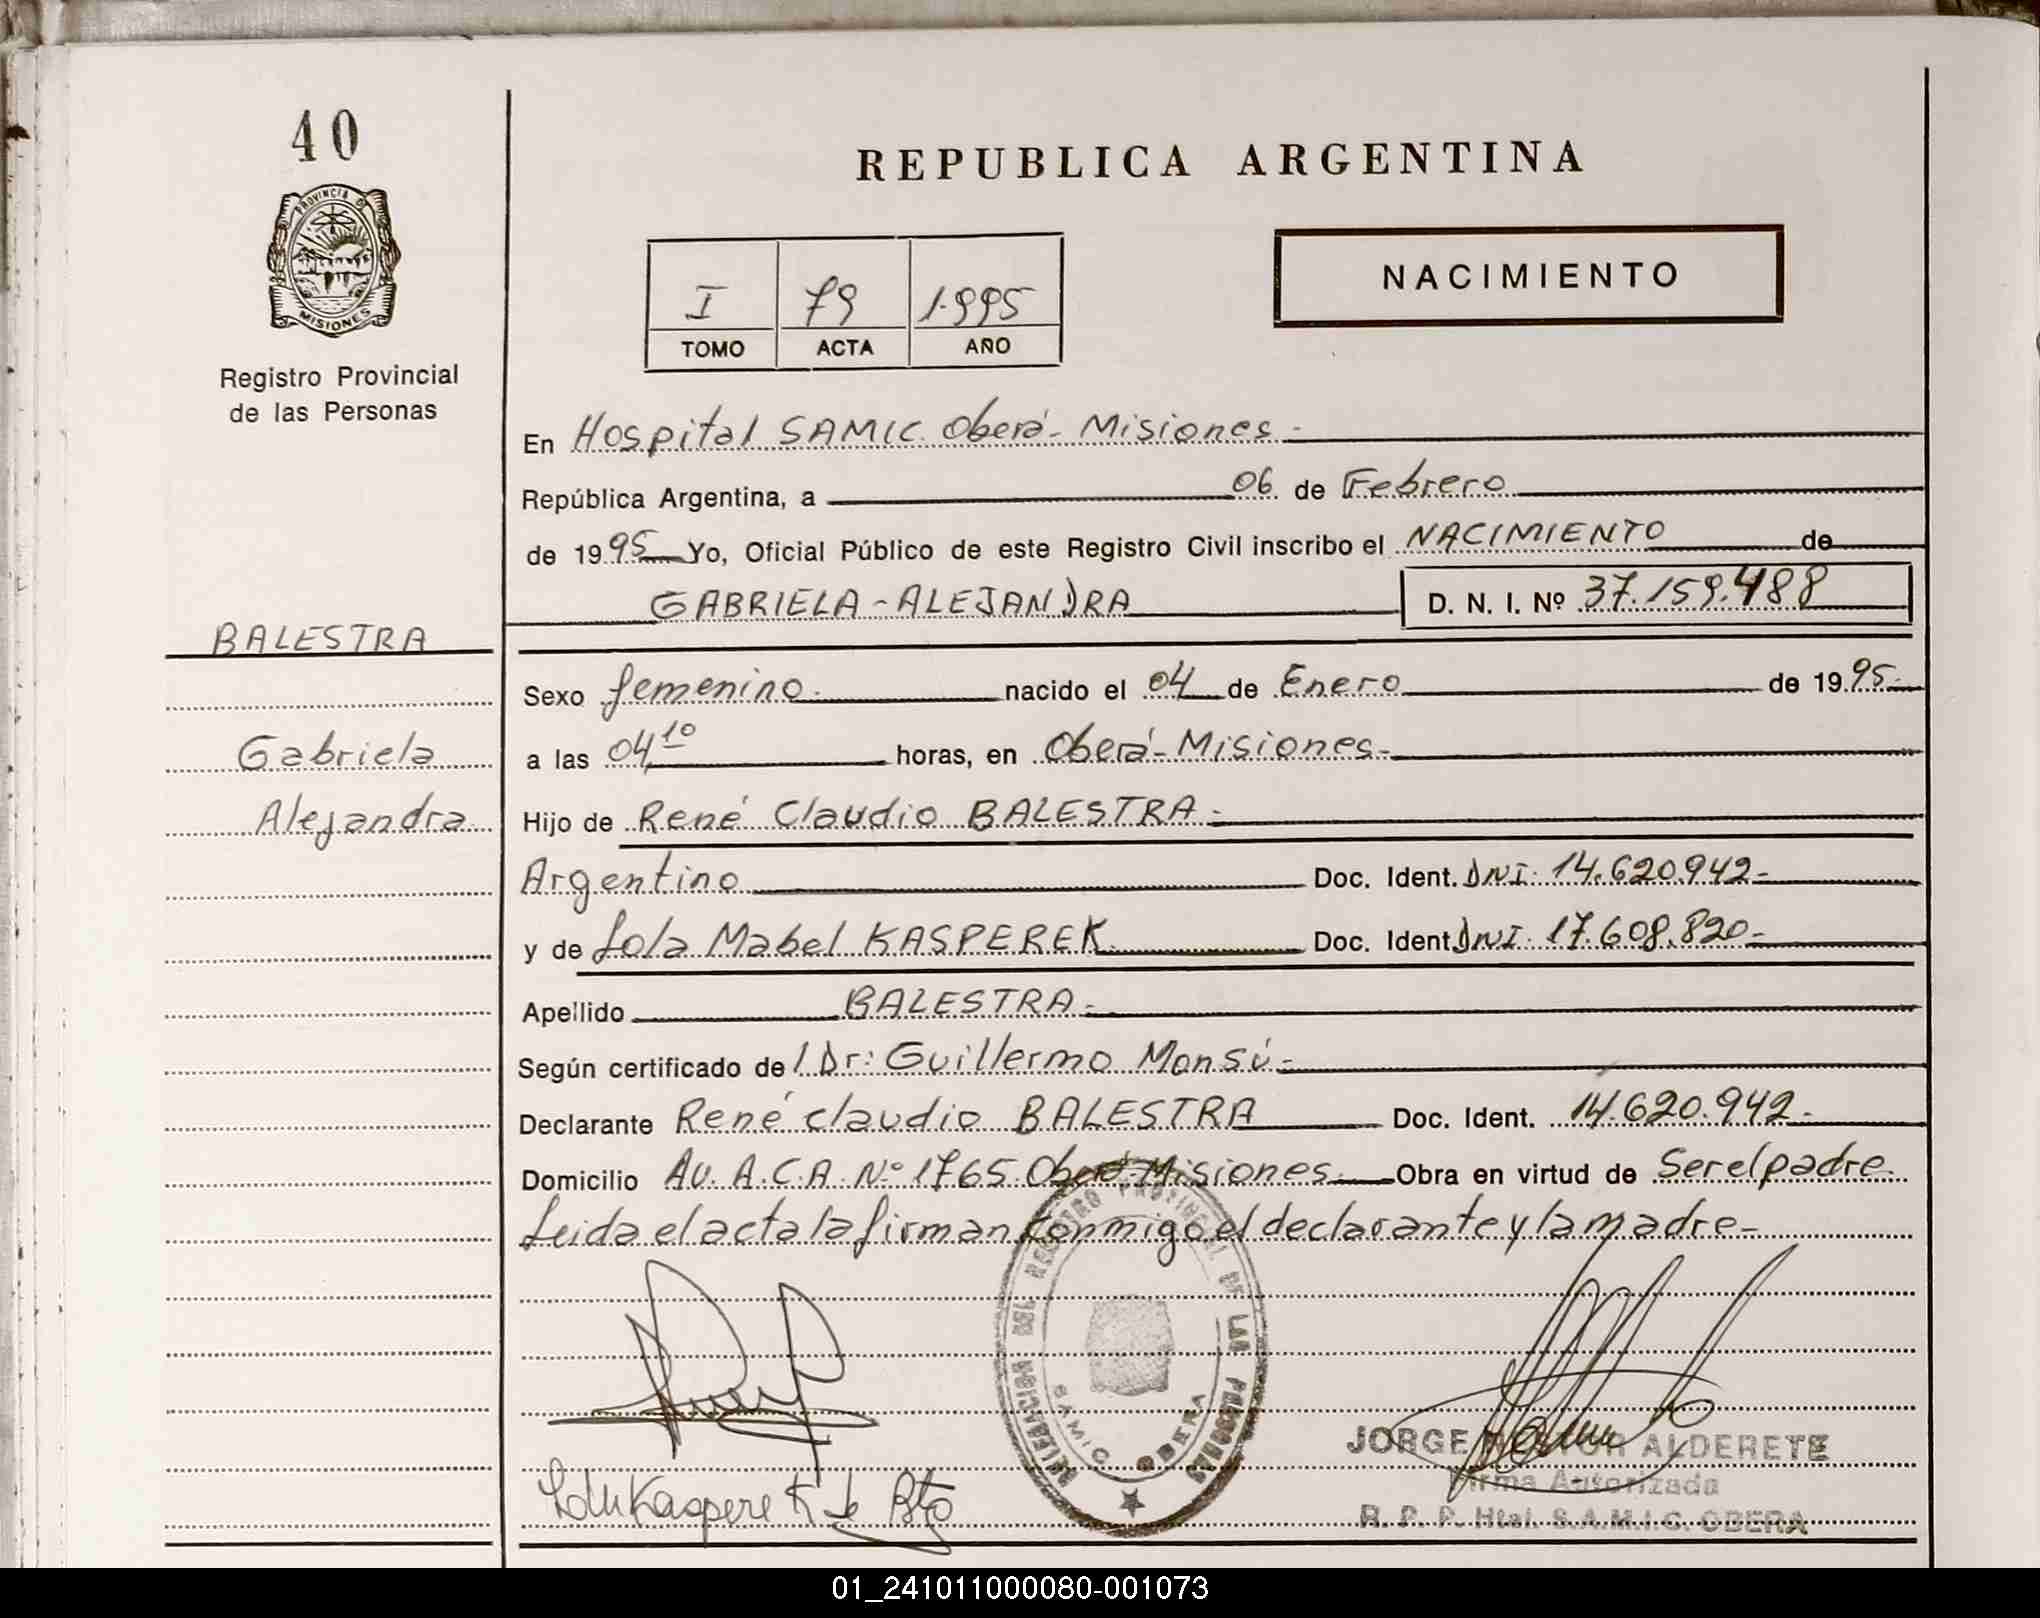 40
PROVINCIA DE
MISIONES
Registro Provincial
de las Personas
REPUBLICA ARGENTINA
I 79 1.995
TOMO ACTA AÑO
NACIMIENTO
En Hospital SAMIC. Oberá - Misiones -
República Argentina, a 06 de Febrero
de 1995 Yo, Oficial Público de este Registro Civil inscribo el NACIMIENTO de
GABRIELA - ALEJANDRA D. N. I. Nº 37.159.488
BALESTRA
Sexo femenino. nacido el 04 de Enero de 1995.
Gabriela
a las 04 10 horas, en Oberá - Misiones -
Alejandra
Hijo de René Claudio BALESTRA -
Argentino Doc. Ident. DNI. 14.620.942 -
y de Lola Mabel KASPEREK. Doc. Ident. DNI. 17.608.820 -
Apellido BALESTRA -
Según certificado de l Dr: Guillermo Monsú -
Declarante René Claudio BALESTRA Doc. Ident. 14.620.942 -
Domicilio AV. A.C.A. Nº 1765. Oberá - Misiones. Obra en virtud de Ser el padre.
Leida el acta la firman conmigo el declarante y la madre -
DELEGACION DEL REGISTRO PROVINCIAL DE LAS PERSONAS
SAMIC OBERA
JORGE ALDERETE
Firma Autorizada
R. P. P. Htal. S.A.M.I.C. OBERA
01_241011000080-001073